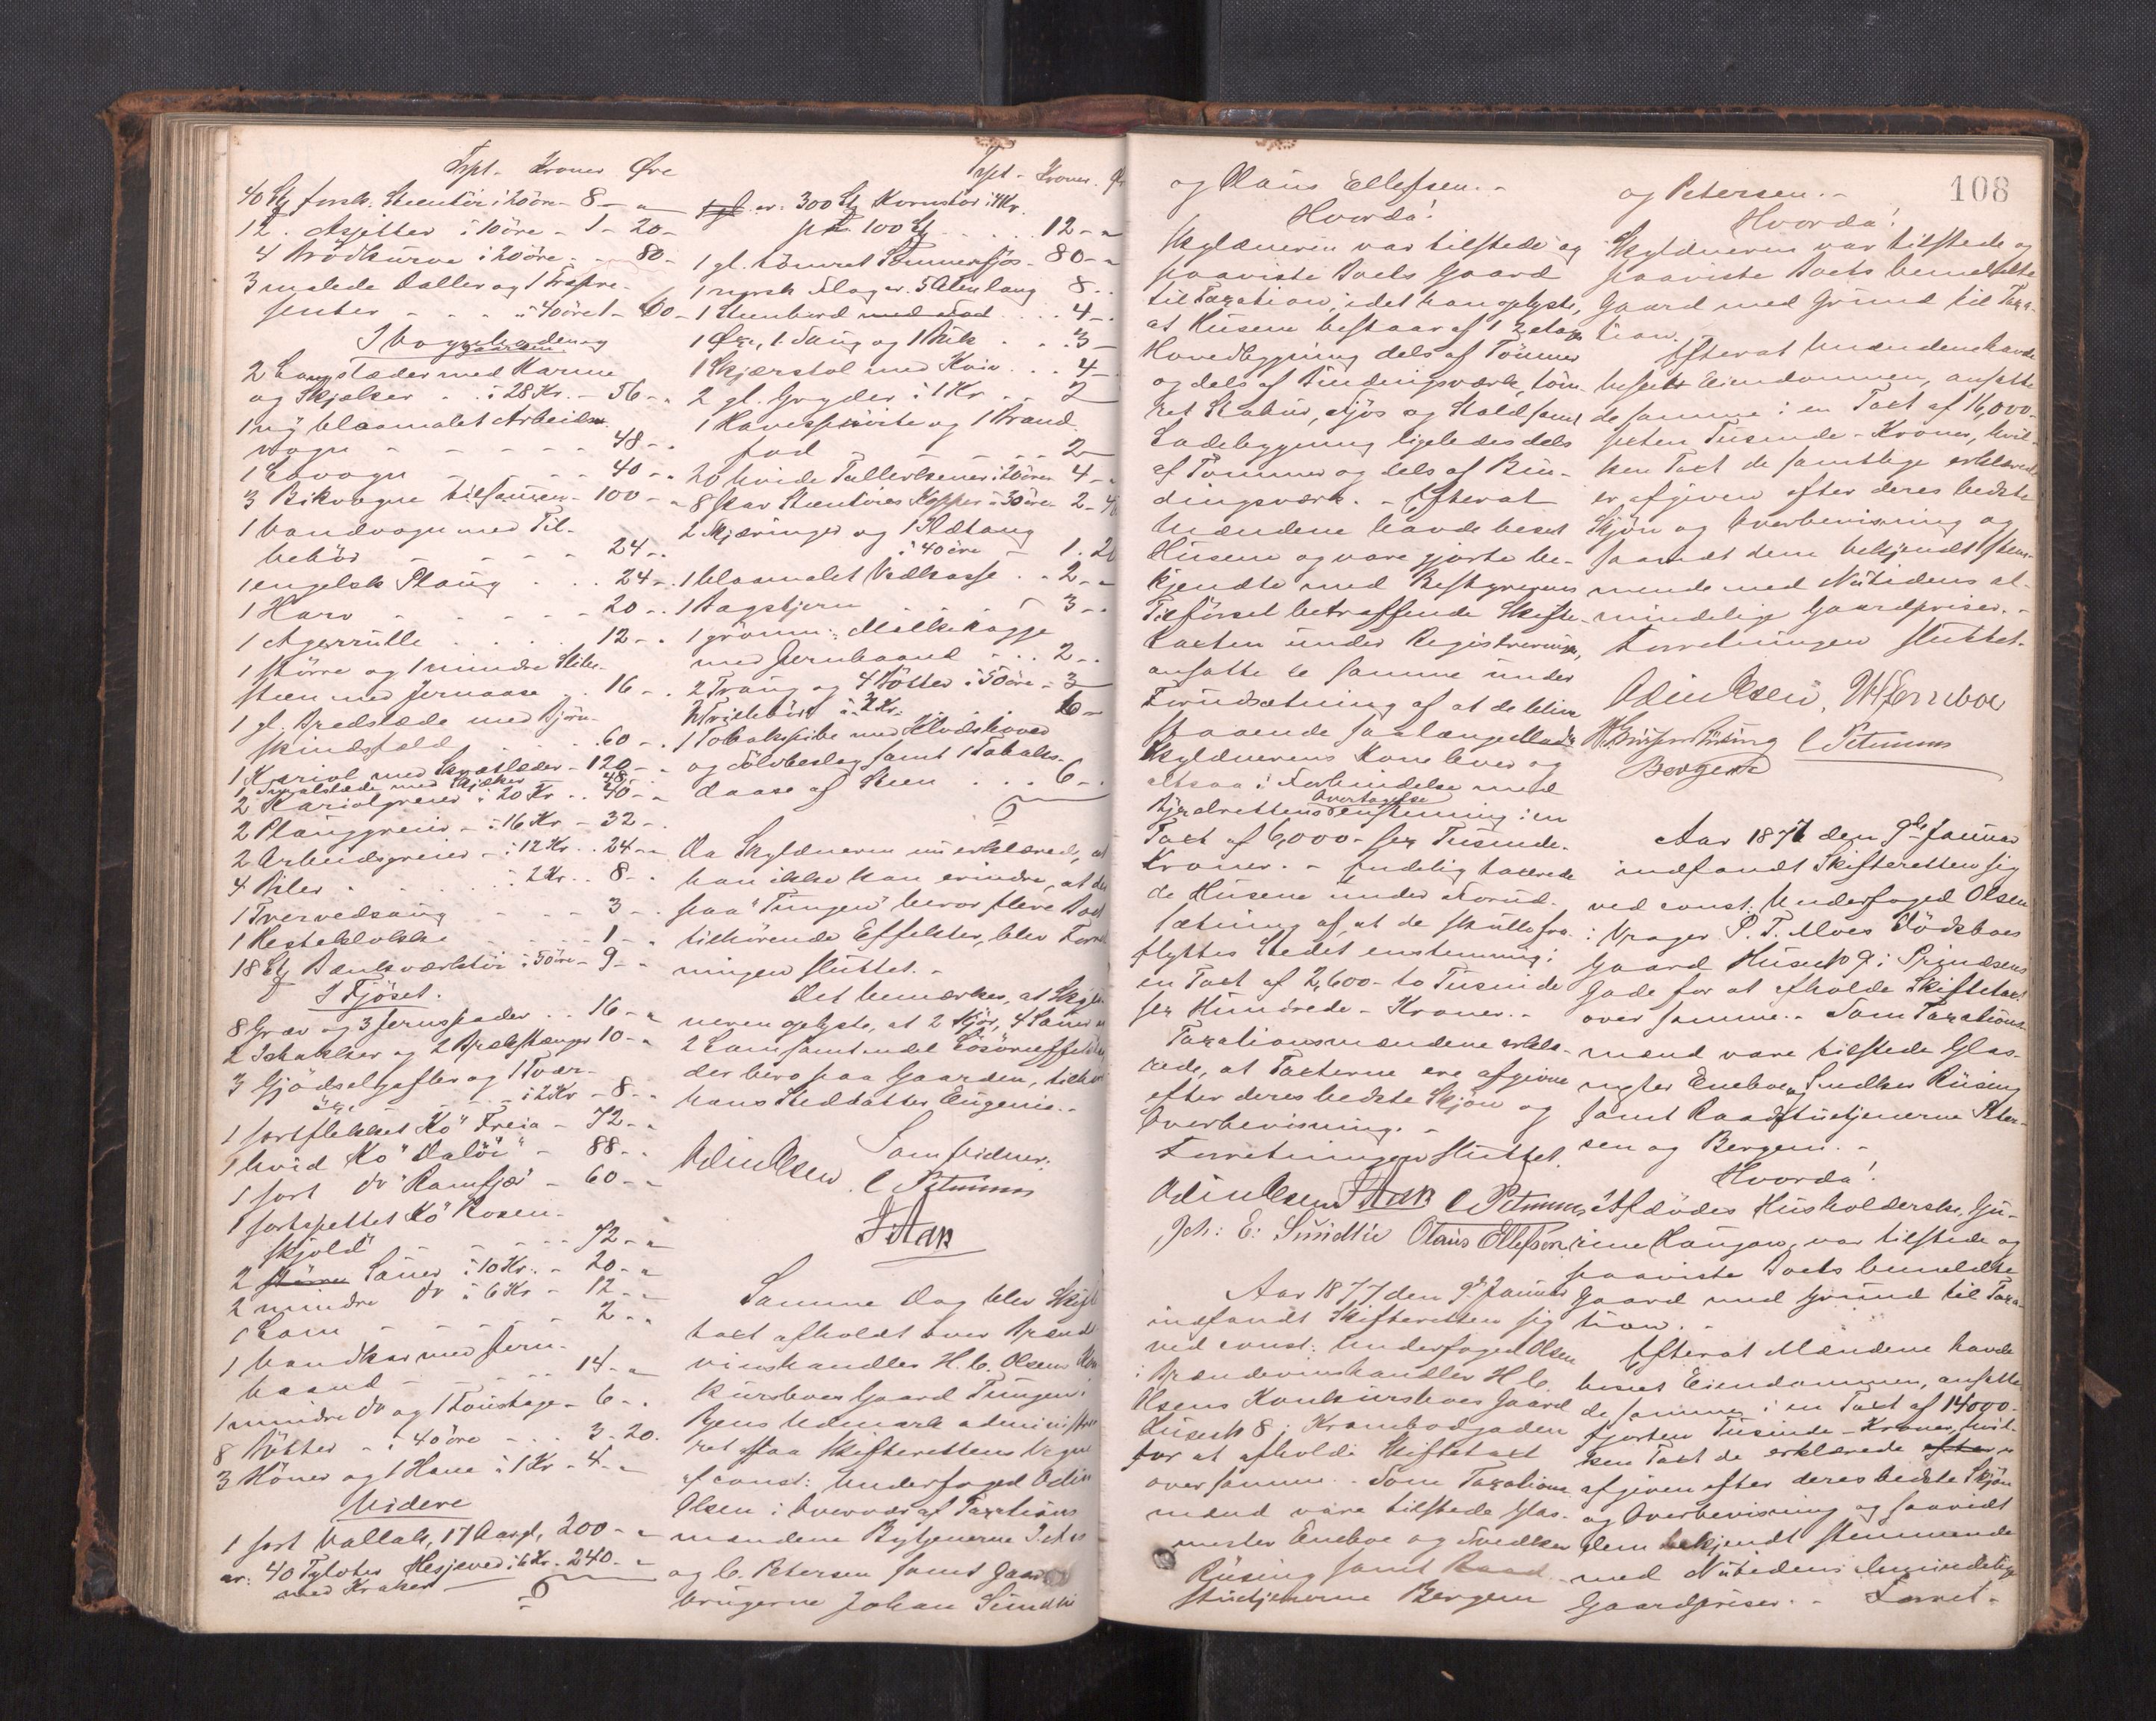 Trpt. Kroner Øre
40 St. forsk. Steentöi i 20 öre - 8 - "
12 . Asjetter i 10 öre - 1 - 20 -
4 Brödkurve i 20 öre - - 80 -
3 malede Baller og 1
senter - - - i 40 öre 1 - 60 -
I Vognboden og
2 Langslæder med Karme
og Skjækker - - i 28 Kr. - 56 - "
1 ny blaamalet Arbeids-
vogn - - - - - 48 - .
1 Lovogn - - - - - 40 - "
3 Bikvogne tilsammen - 100 - "
1 Vandvogn med Til-
behör - - - - - 24 - .
1 engelsk Ploug . . . 24 - .
1 Harv - - - - - 20 - .
1 Agerrulle . . . . 12 - .
1 större og 1 mindre Slibe-
steen med Jernaase . . 16 - .
1 gl. Bredslæde med Björn-
skindsfeld . . . . 60 - .
1 Kariol med Skvætlæder - 120 - .
1 Spidsslæde med Skjækker 48 - .
2 Kariolgreier i 20 Kr . . 40 - "
2 Plouggreier - i 16 Kr - 32 - .
2 Arbeidsgreier - i 12 Kr . . 24 - "
4 Biler . . . . . i 2 Kr . . 8 - .
1 Tvervedsaug - - - 3 - .
1 Hesteklokke - - - - 1 - "
18 St. Bænkværktöi i 50 öre - 9 - "
I Fjöset.
8 Grev og 3 Jernspader . . 16 - "
2 Ishakker og 2 Brækstænger 10 - "
3 Gjödselgafler og 1 Tvær-
öxe - - - - i 2 Kr - 8 - .
1 sortflekket Ko "Freia - 72 - "
1 hvid Ko "Daløi" - 88 - .
1 sort do "Ramfjæ - 60 - "
1 sortspettet Ko "Rosen-
skjold" - - - - - 72 - "
2 större Sauer i 10 Kr. - 20 - "
2 mindre do i 6 Kr - 12 - "
1 Lam - - - - - 2 - "
1 Vandkar med Jern-
baand - - - - - 14 - "
1 mindre do og 1 Foustage - 6 - .
8 Bötter - i 40 öre - - 3 - 20.
3 Höner og 1 Hane i 1 Kr - 4 - "
Videre
1 sort Vallak, 17 Aar gl, 200 - "
ar: 40 Tylvter Hesjeved i 6 Kr - 240 - "
med Kraker
Trpt - Kroner. Ør
ar. 300 St. Kornstör i 4 Kr.
pr. 100 St. . . . . 12 - "
1 gl. tömret Sommerfjös - 80 - "
1 norsk Flag ar. 5 Alen lang 8 - .
1 Steenbord med Fod . . . . 4 - .
1 Øxe, 1 Saug og 1 . . . 3 -
1 Skjærstol med Kniv . . . 4 - .
2 gl. Gryder i 1 Kr . . 2
1 Havesprøite og 1 Brand-
fad - - - - - 2
20 hvide Tallerkener i 20 ören 4 - "
8 Par Steentöies Kopper i 30 öre 2 - 40
2 Skjæringer og 1 Ildtang
i 40 öre - 1 . 20
1 blaamalet Vedkasse . . 2 - "
1 Bagstjern . . . . . 3 - .
1 grönm: Melkekagge
med Jernbaand . . . 2 - .
2 Traug og 4 Bötter i 50 öre - 3
2 Trillebör i 3 Kr. . . . 6 -
1 Tobakspibe med Hovedskoved
og Sölvbeslag samt 1 Tobaks-
daase af Steen . . . . 6 - .
Da Skyldneren nu erklærede, at
han ikke kan erindre, at der
paa "Tungen" beror flere Boet
tilhörende Effekter, blev Forret-
ningen sluttet. -
Det bemærkes, at Skyld-
neren oplyste, at 2 Kjör, 4 Sauer og
2 Lam samt endel Lösöreeffekter,
der bero paa Gaarden, tilhöre
hans Steddatter Eugenie. -
Som Vidner.
Odin Olsen C Petersen
I. Aas
Samme Dag blev Skifte-
taxt afholdt over Brænde-
vinshandler H. C. Olsens Kon-
kursboes Gaard Tungen i
Byens Udmark administre-
ret paa Skifterettens Vegne
af const: Underfoged Odin
Olsen i Overvær af Taxations
mændene Bytjenerne I. Aas
og C. Petersen samt Gaard-
brugerne Johan Sundlie
og Olaus Ellefsen. -
Hvorda!
Skyldneren var tilstede og
paaviste Boets Gaard
til Taxation, idet han oplyste,
at Husene bestaar af 1 2 etages
Hovedbygning dels af Tömmer
og dels af Bindingsværk, töm-
ret Stabur, Fjös og Stald samt
Ladebygning ligeledes dels
af Tömmer og dels af Bin-
dingsværk. - Efterat
Mændene havde beset
Husene og vare gjorte be-
kjendte med Bestyrerens
Tilförsel betræffende Skifte-
taxten under Registreringen,
ansatte de samme under
Forudsætning af at de blive
staaende saalænge
Skyldnerens Kone lever og
altsaa i Forbindelse med
Bygselrettens Overtagelse enstemmig i en
Taxt af 6,000 - sex Tusinde -
Kroner. - Endelig taxerede
de Husene under Forud-
sætning af, at de skulle fra-
flyttes Stedet enstemmig i
en Taxt af 2,600 - to Tusinde
sex Hundrede - Kroner. -
Taxationsmændene erklæ-
rede, at Taxterne ere afgivne
efter deres bedste Skjön og
Overbevisning. -
Forretningen sluttet.
Odin Olsen I Aas C Petersen
Joh: E: Sundlie Olaus Ellefsen
Aar 1877 den 9de Januar
indfandt Skifteretten sig
ved const: Underfoged Olsen
i Brændevinshandler H. C.
Olsens Konkursboes Gaard
Huset No 8 i Krambodgaden
for at afholde Skiftetaxt
over samme. - Som Taxations
mænd vare tilstede Glas-
mester Eneboe og Snedker
Rüsing samt Raad-
stutjenerne Bergem
og Petersen. -
108
Hvorda!
Skyldneren var tilstede og
paaviste Boets bemeldte
Gaard med Grund til Taxa-
tion.
Efterat Mændene havde
beset Eiendommen, ansatte
de samme i en Taxt af 16,000 -
sexten Tusinde - Kroner, hvil-
ken Taxt de samtlige erklærede
er afgiven efter deres bedste
Skjön og Overbevisning og
saavidt dem bekjendt stem-
mende med Nutidens al-
mindelige Gaardpriser. -
Forretningen sluttet.
Odin Olsen, Eneboe
Rüsing C Petersen
Bergem
Aar 1877 den 9de Januar
indfandt Skifteretten sig
ved const: Underfoged Olsen
i Vrager P. T. Moes Dödsboes
Gaard Huset No 9 i Prindsens
Gade for at afholde Skiftetaxt
over samme. - Som Taxations-
mænd vare tilstede Glas-
mester Eneboe og Snedker Rüsing
samt Raadstutjenerne Peter-
sen og Bergem. -
Hvorda!
Afdödes Husholderske, Gu-
rine Haugan, var tilstede og
paaviste Boets bemeldte
Gaard med Grund til Taxa-
tion. -
Efterat Mændene havde
beset Eiendommen, ansatte
de samme i en Taxt af 14000 -
fjorten Tusinde - Kroner, hvil-
ken Taxt de erklærede efter er
afgiven efter deres bedste Skjön
og Overbevisning og saavidt
dem bekjendt stemmende
med Nutidens almindelige
Gaardpriser. - Forret-